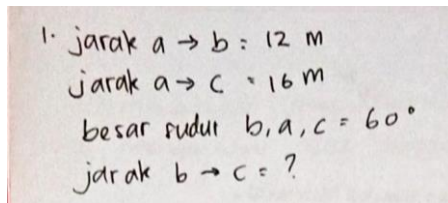 1. jarak a → b : 12 m
jarak a → c = 16 m
besar sudut b, a, c = 60°
jarak b → c = ?